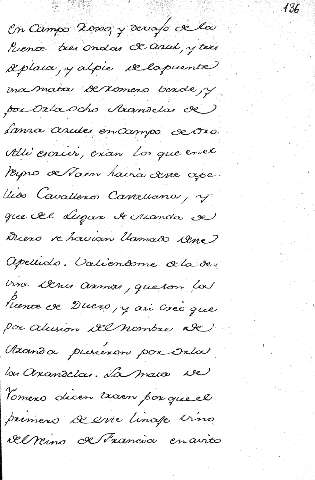 136
en Campo Roxo, y devajo de la
Puente tres ondas de azul, y tres
de plata, y al pie de la puente
una mata de romero verde, y
por Orla ocho Arandelas de
Lanza azules en campo de oro
Alli escrivi, eran los que en el
Reyno de Jaen havia de este ape-
llido Cavalleros Castellanos, y
que del Lugar de Aranda de
Duero se havian llamado de este
Apellido. Valiendome de la de-
visa de sus armas, que son la
Puente de Duero, y asi creo que
por alusion del nombre de
Aranda pusieron por Orla
las Arandelas. La mata de
Romero dicen traen por que el
primero de este linaje vino
del Reino de Francia en avito